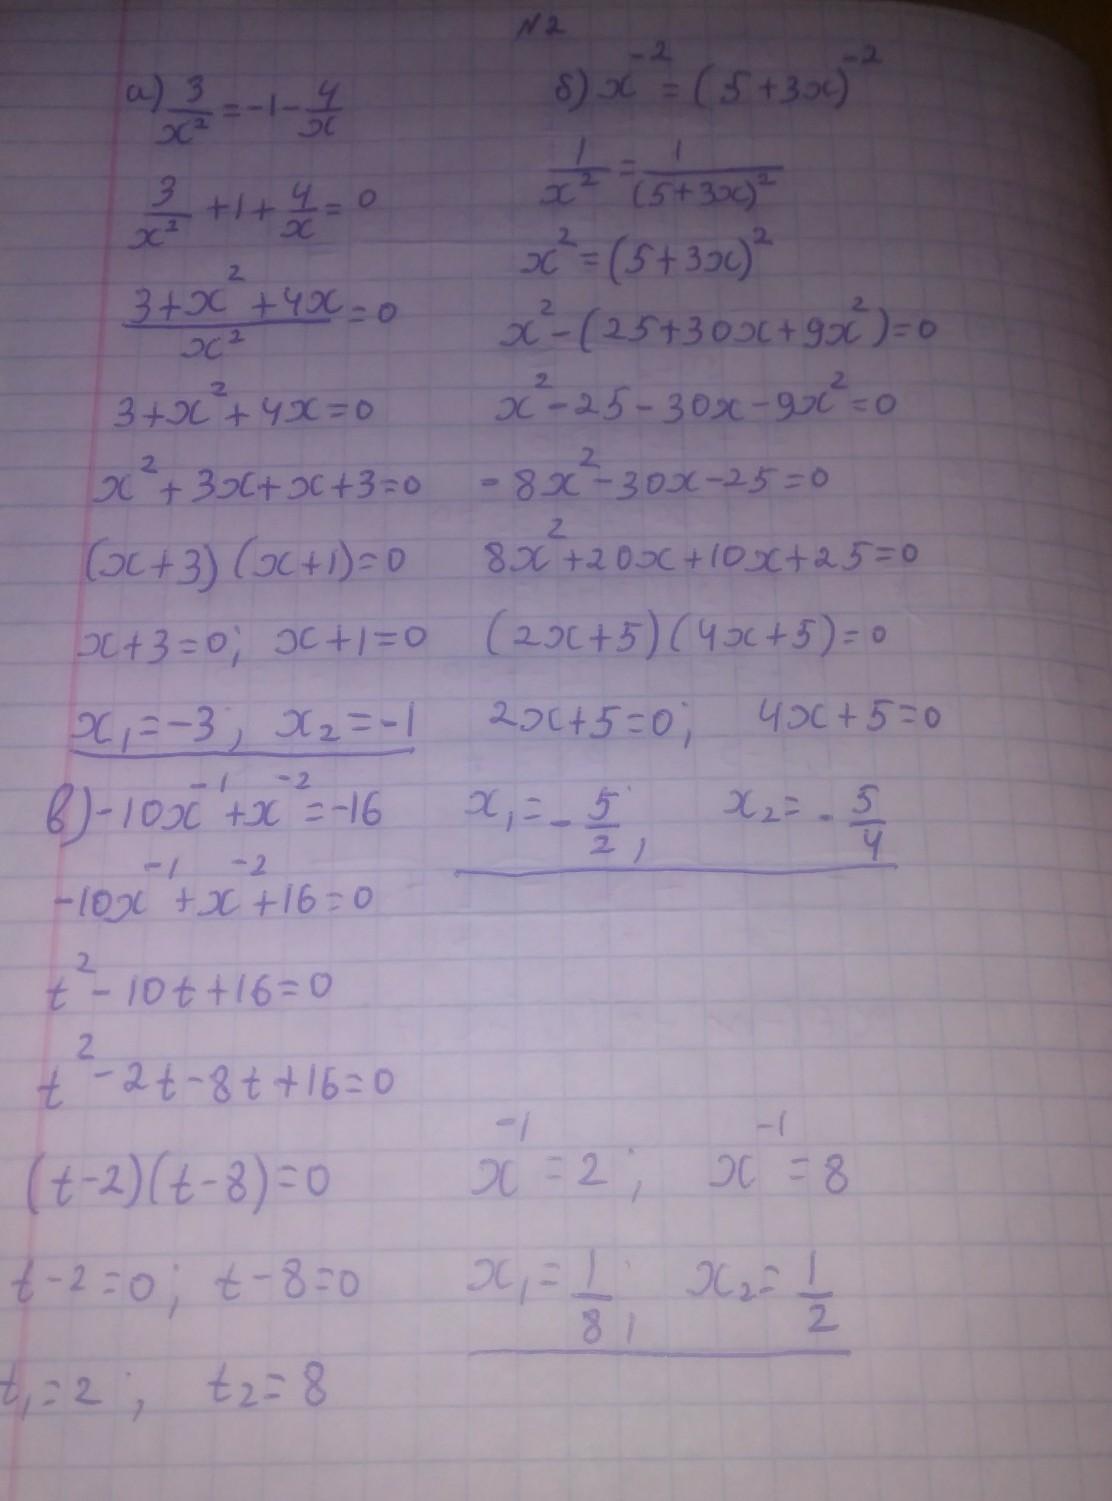 N2
а) 3/x² = -1 - 4/x
3/x² + 1 + 4/x = 0
(3+x²+4x)/x² = 0
3+x²+4x=0
x²+3x+x+3=0
(x+3)(x+1)=0
x+3=0; x+1=0
x₁=-3; x₂=-1
б) x⁻² = (5+3x)⁻²
1/x² = 1/(5+3x)²
x²=(5+3x)²
x²-(25+30x+9x²)=0
x²-25-30x-9x²=0
-8x²-30x-25=0
8x²+20x+10x+25=0
(2x+5)(4x+5)=0
2x+5=0; 4x+5=0
x₁=-5/2; x₂=-5/4
в) -10x⁻¹+x⁻²=-16
-10x⁻¹+x⁻²+16=0
t²-10t+16=0
t²-2t-8t+16=0
(t-2)(t-8)=0
t-2=0; t-8=0
t₁=2; t₂=8
x⁻¹=2; x⁻¹=8
x₁=1/8; x₂=1/2